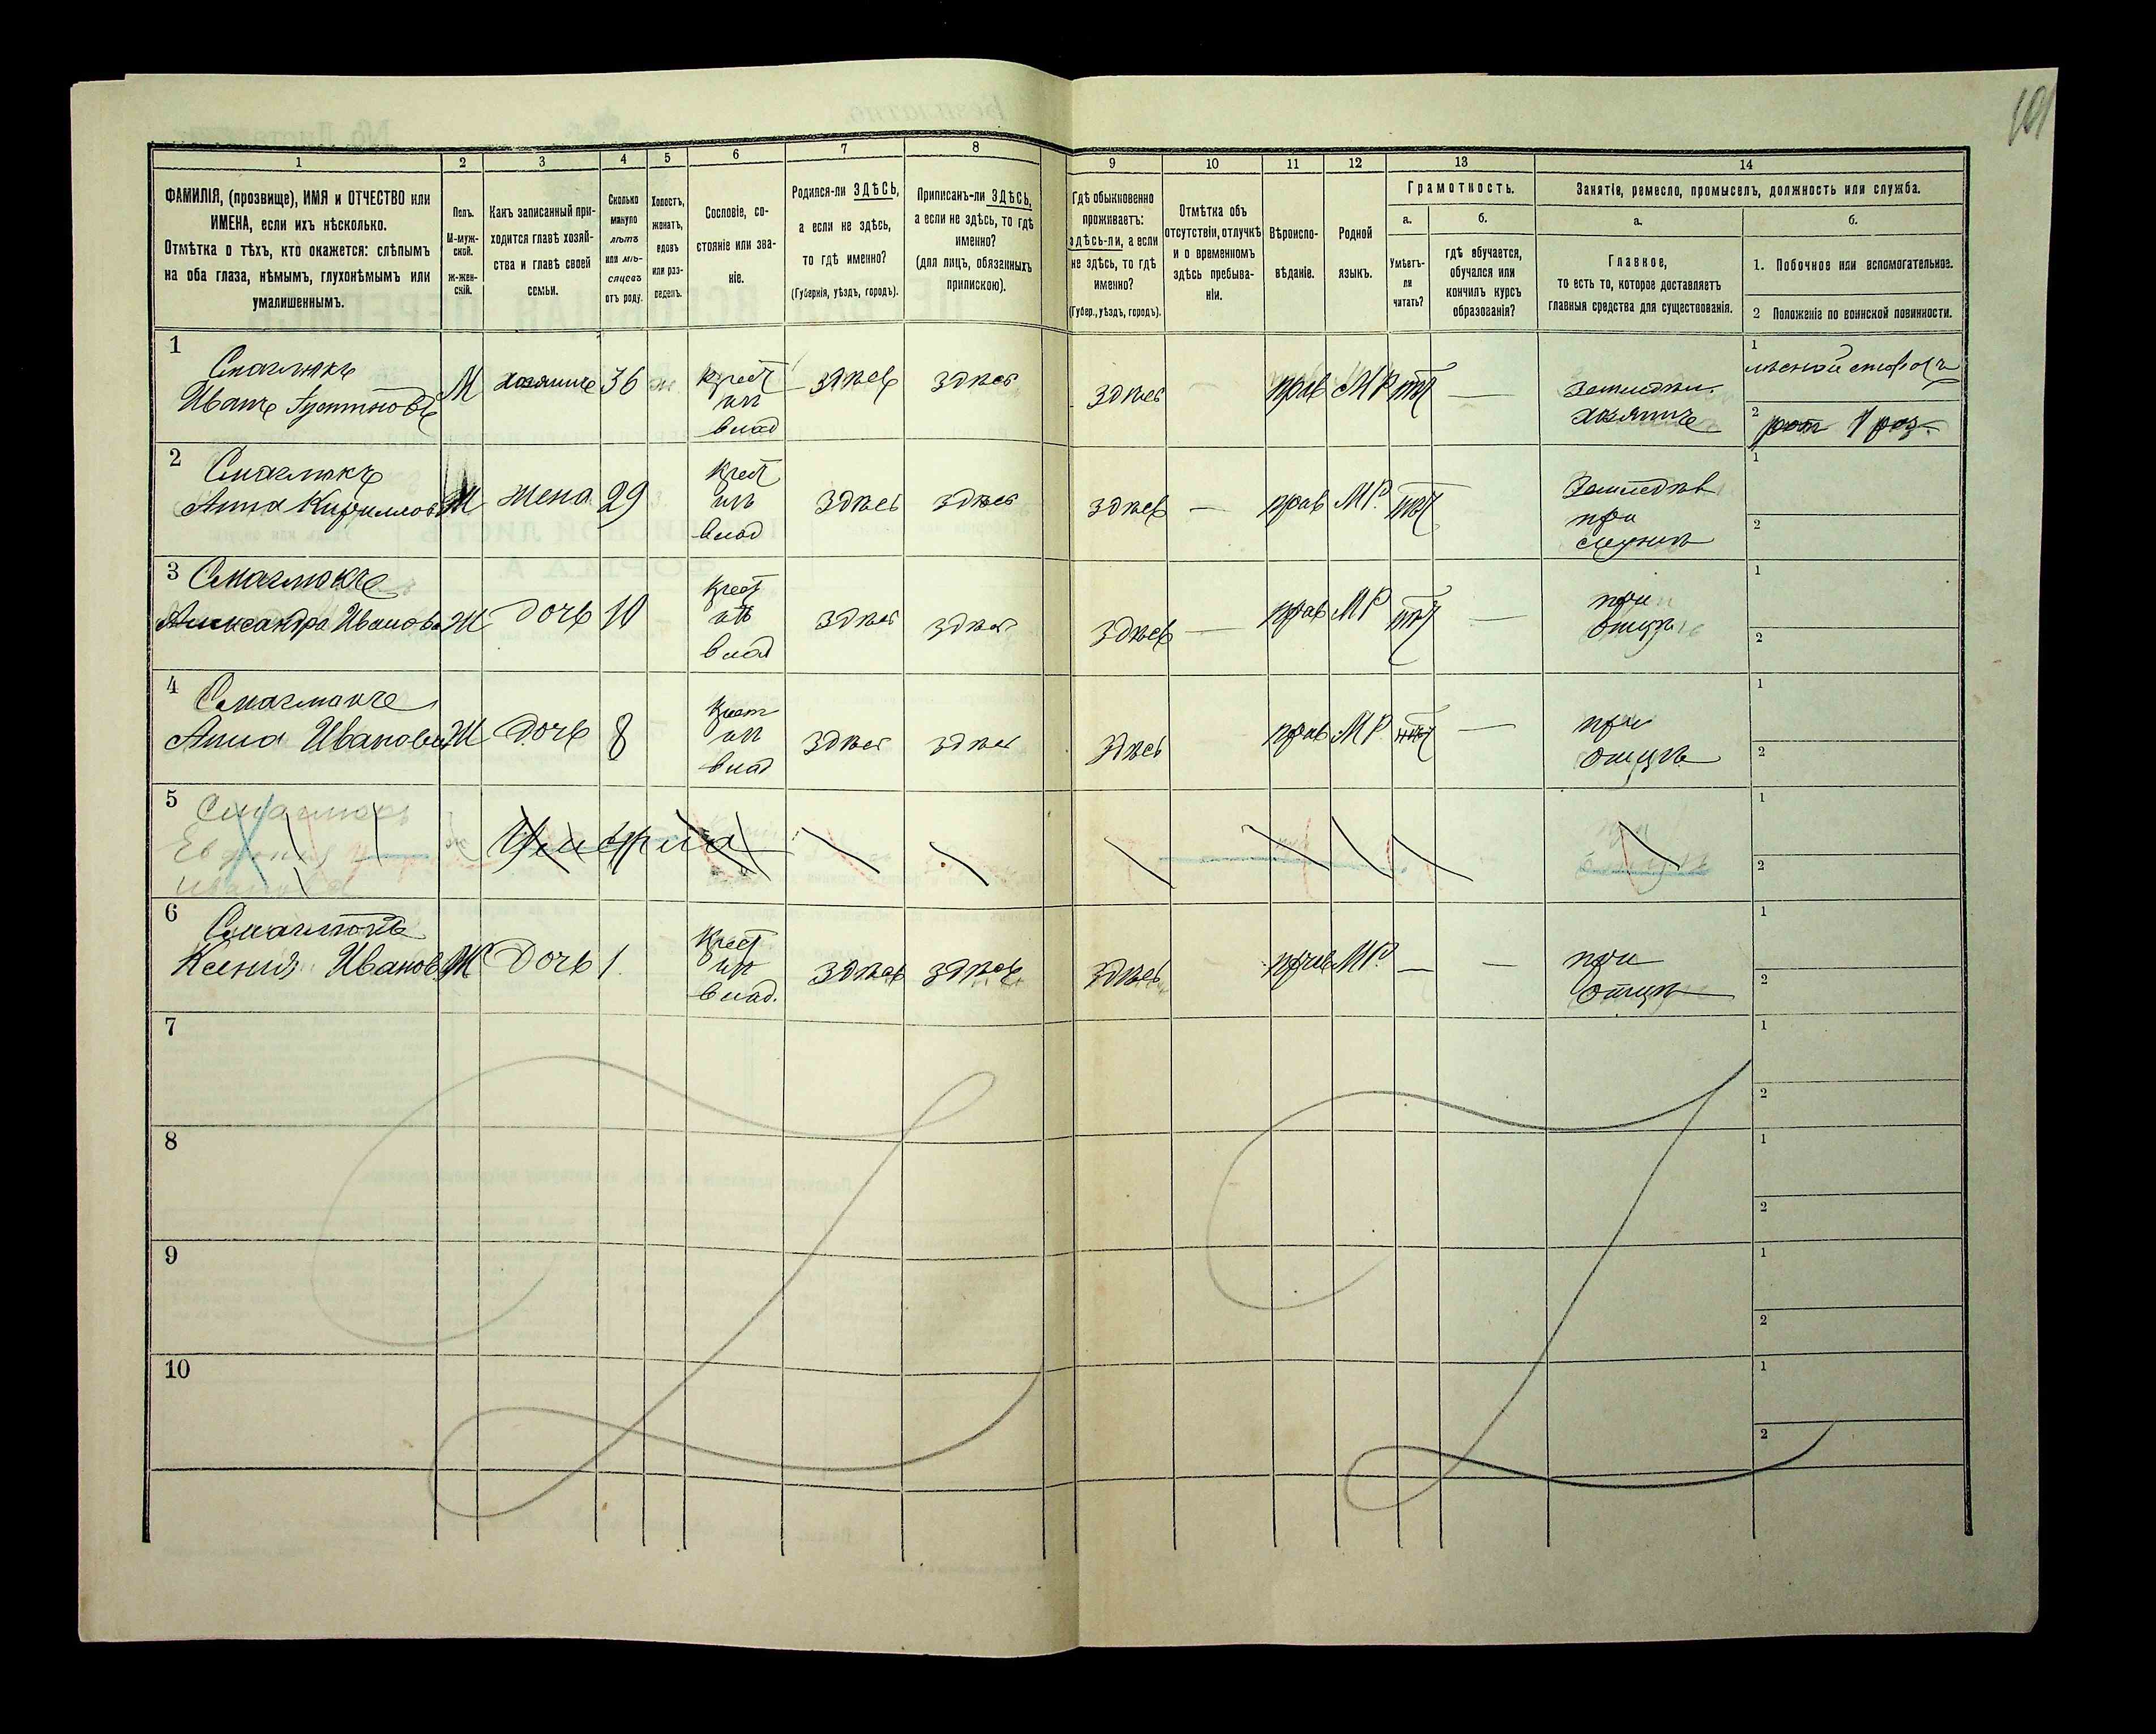 101
1 2 3 4 5 6 7 8 9 10 11 12 13 14
ФАМИЛІЯ, (прозвище), ИМЯ и ОТЧЕСТВО или
ИМЕНА, если ихъ нѣсколько.
Отмѣтка о тѣхъ, кто окажется: слѣпымъ
на оба глаза, нѣмымъ, глухонѣмымъ или
умалишеннымъ.
Полъ.
М-муж-
ской.
ж-жен-
скій.
Какъ записанный при-
ходится главѣ хозяй-
ства и главѣ своей
семьи.
Сколько
минуло
лѣтъ
или мѣ-
сяцевъ
отъ роду.
Холостъ,
женатъ,
вдовъ
или раз-
веденъ.
Сословіе, со-
стояніе или зва-
ніе.
Родился-ли ЗДѢСЬ,
а если не здѣсь,
то гдѣ именно?
(Губернія, уѣздъ, городъ).
Приписанъ-ли ЗДѢСЬ,
а если не здѣсь, то гдѣ
именно?
(для лицъ, обязанныхъ
припискою).
Гдѣ обыкновенно
проживаетъ:
здѣсь-ли, а если
не здѣсь, то гдѣ
именно?
(Губер., уѣздъ, городъ).
Отмѣтка объ
отсутствіи, отлучкѣ
и о временномъ
здѣсь пребыва-
ніи.
Вѣроиспо-
вѣданіе.
Родной
языкъ.
Грамотность.
а.
Умѣетъ-
ли
читать?
б.
гдѣ обучается,
обучался или
кончилъ курсъ
образованія?
Занятіе, ремесло, промыселъ, должность или служба.
а.
Главное,
то есть то, которое доставляетъ
главныя средства для существованія.
б.
1. Побочное или вспомогательное.
2 Положеніе по воинской повинности.
1
Смаглюкъ
Иванъ Густиновъ
М хозяинъ 36 ж
крест
изъ
влад
здѣсь здѣсь здѣсь прав МР нѣт —
Земледѣл.
хозяинъ
1
лѣсной сторожъ
2
рат 1 раз.
2
Смаглюкъ
Анна Кириллов
Ж жена 29
крест
изъ
влад
здѣсь здѣсь здѣсь — прав МР. нѣт
Земледѣл
при
1
2
3
Смаглюкъ
Александра Иванова
Ж дочь 10
крест
изъ
влад
здѣсь здѣсь здѣсь — прав МР нѣт —
при
отцѣ
1
2
4
Смаглюкъ
Анна Иванова
Ж дочь 8
крест
изъ
влад
здѣсь здѣсь здѣсь прав МР нѣт —
при
отцѣ
1
2
5
Смаглюкъ
Иванова
Умерла
при
отцѣ
1
2
6
Смаглюкъ
Ксения Иванов
Ж Дочь 1.
Крест
изъ
влад.
здѣсь здѣсь здѣсь прав МР. — —
при
отцѣ
1
2
7
1
2
8
1
2
9
1
2
10
1
2